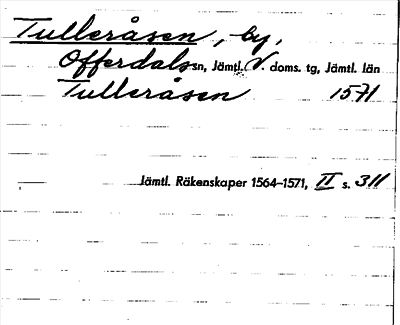 Tulleråsen, by,
Offerdals sn, Jämtl. V. doms. tg, Jämtl. län
Tulleråsen 1571
Jämtl. Räkenskaper 1564–1571, II s. 311